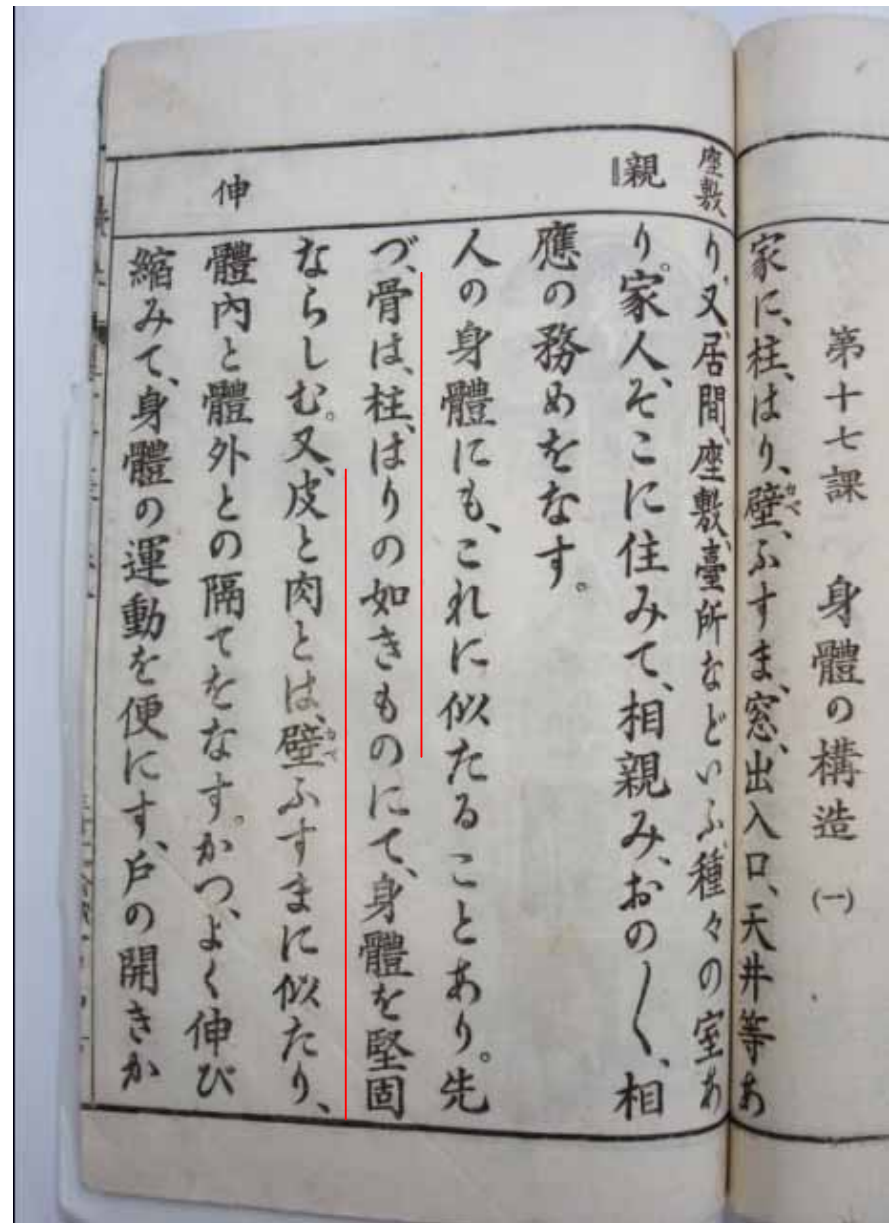 第十七課 身體の構造 (一)
家に、柱、はり、壁、ふすま、窓、出入口、天井等あ
かべ
座敷
り、又、居間、座敷、臺所などいふ、種々の室あ
親
り。家人、そこに住みて、相親み、おの〳〵、相
應の務めをなす。
人の身體にも、これに似たることあり。先
づ、骨は、柱、はりの如きものにて、身體を堅固
ならしむ。又、皮と肉とは、壁ふすまに似たり、
かべ
伸
體內と體外との隔てをなす。かつ、よく伸び
縮みて、身體の運動を便にす、戶の開きか